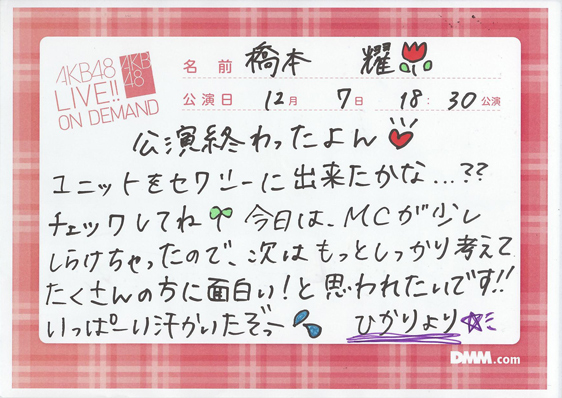 AKB48
LIVE!!
ON DEMAND
AKB
48
名前 橋本 耀
公演日 12月 7日 18:30公演
公演終わったよん
ユニットをセクシーに出来たかな...??
チェックしてね 今日は、MCが少し
しらけちゃったので、次はもっとしっかり考えて
たくさんの方に面白い!と思われたいです!!
いっぱーい汗かいたぞー
ひかりより
DMM.com